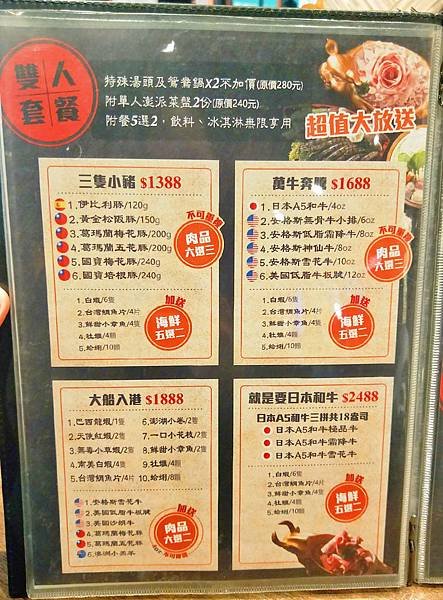 雙人
套餐
特殊湯頭及鴛鴦鍋x2不加價(原價280元)
附單人澎派菜盤2份(原價240元)
附餐5選2，飲料、冰淇淋無限享用
超值大放送
三隻小豬 $1388
1.伊比利豚/120g
2.黃金松阪豚/150g
3.葛瑪蘭梅花豚/200g
4.葛瑪蘭五花豚/200g
5.國寶梅花豚/240g
6.國寶培根豚/240g
不可重複
肉品
六選三
1.白蝦/6隻
2.台灣鯛魚片/4片
3.鮮甜小章魚/4隻
4.牡蠣/4顆
5.蛤蜊/10顆
加送
海鮮
五選二
萬牛奔騰 $1688
1.日本A5和牛/4oz
2.安格斯無骨牛小排/6oz
3.安格斯低脂霜降牛/8oz
4.安格斯神仙牛/8oz
5.安格斯雪花牛/10oz
6.美國低脂牛板腱/12oz
不可重複
肉品
六選三
1.白蝦/6隻
2.台灣鯛魚片/4片
3.鮮甜小章魚/4隻
4.牡蠣/4顆
5.蛤蜊/10顆
加送
海鮮
五選二
大船入港 $1888
1.巴西龍蝦/1隻
2.天使紅蝦/2隻
3.無毒小草蝦/2隻
4.南美白蝦/4隻
5.台灣鯛魚片/4片
6.澎湖小卷/2隻
7.一口小花枝/2隻
8.鮮甜小章魚/2隻
9.牡蠣/4顆
10.蛤蜊/8顆
1.安格斯雪花牛
2.美國低脂牛板腱
3.美國沙朗牛
4.葛瑪蘭梅花豚
5.葛瑪蘭五花豚
6.澳洲小羔羊
加送
肉品
六選二
不可重複
就是要日本和牛 $2488
日本A5和牛三拼共18盎司
日本A5和牛極品牛
日本A5和牛霜降牛
日本A5和牛雪花牛
1.白蝦/6隻
2.台灣鯛魚片/4片
3.鮮甜小章魚/4隻
4.牡蠣/4顆
5.蛤蜊/10顆
加送
海鮮
五選二